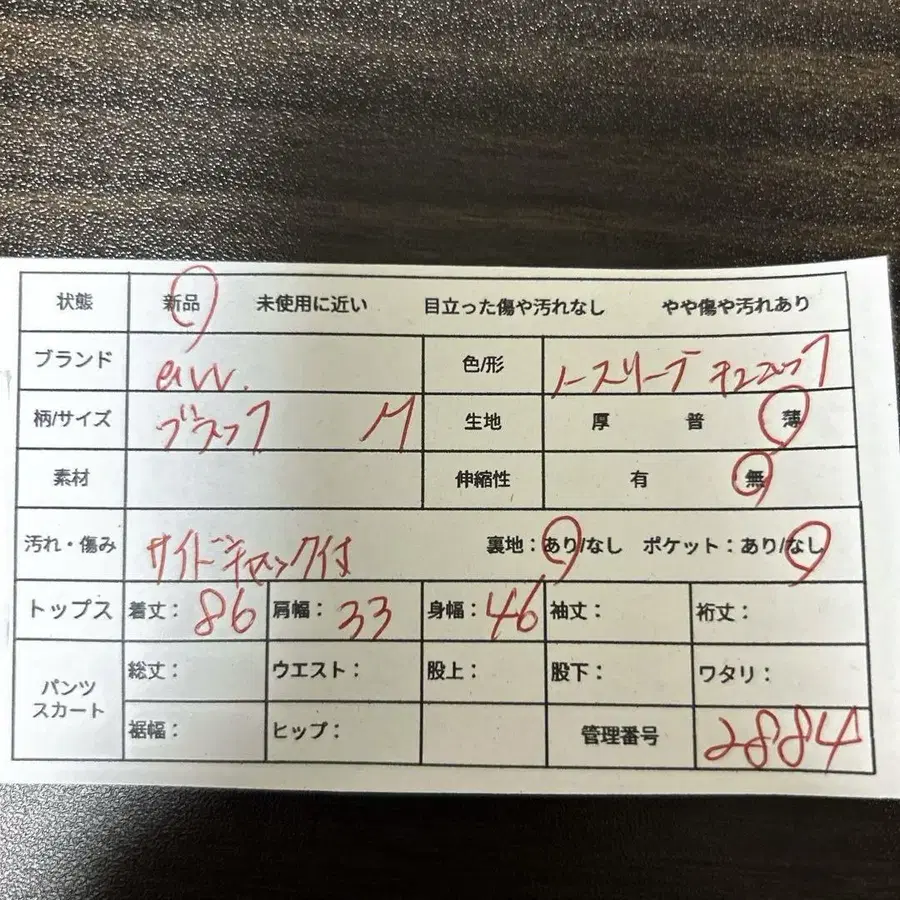 状態 新品 未使用に近い 目立った傷や汚れなし やや傷や汚れあり
ブランド aw. 色/形 ノースリーブ チュニック
柄/サイズ ブラック M 生地 厚 普 薄
素材 伸縮性 有 無
汚れ・傷み サイドギャザー付 裏地:あり/なし ポケット:あり/なし
トップス 着丈: 86 肩幅: 33 身幅: 46 袖丈: 裄丈:
パンツ スカート 総丈: ウエスト: 股上: 股下: ワタリ:
裾幅: ヒップ: 管理番号 2884